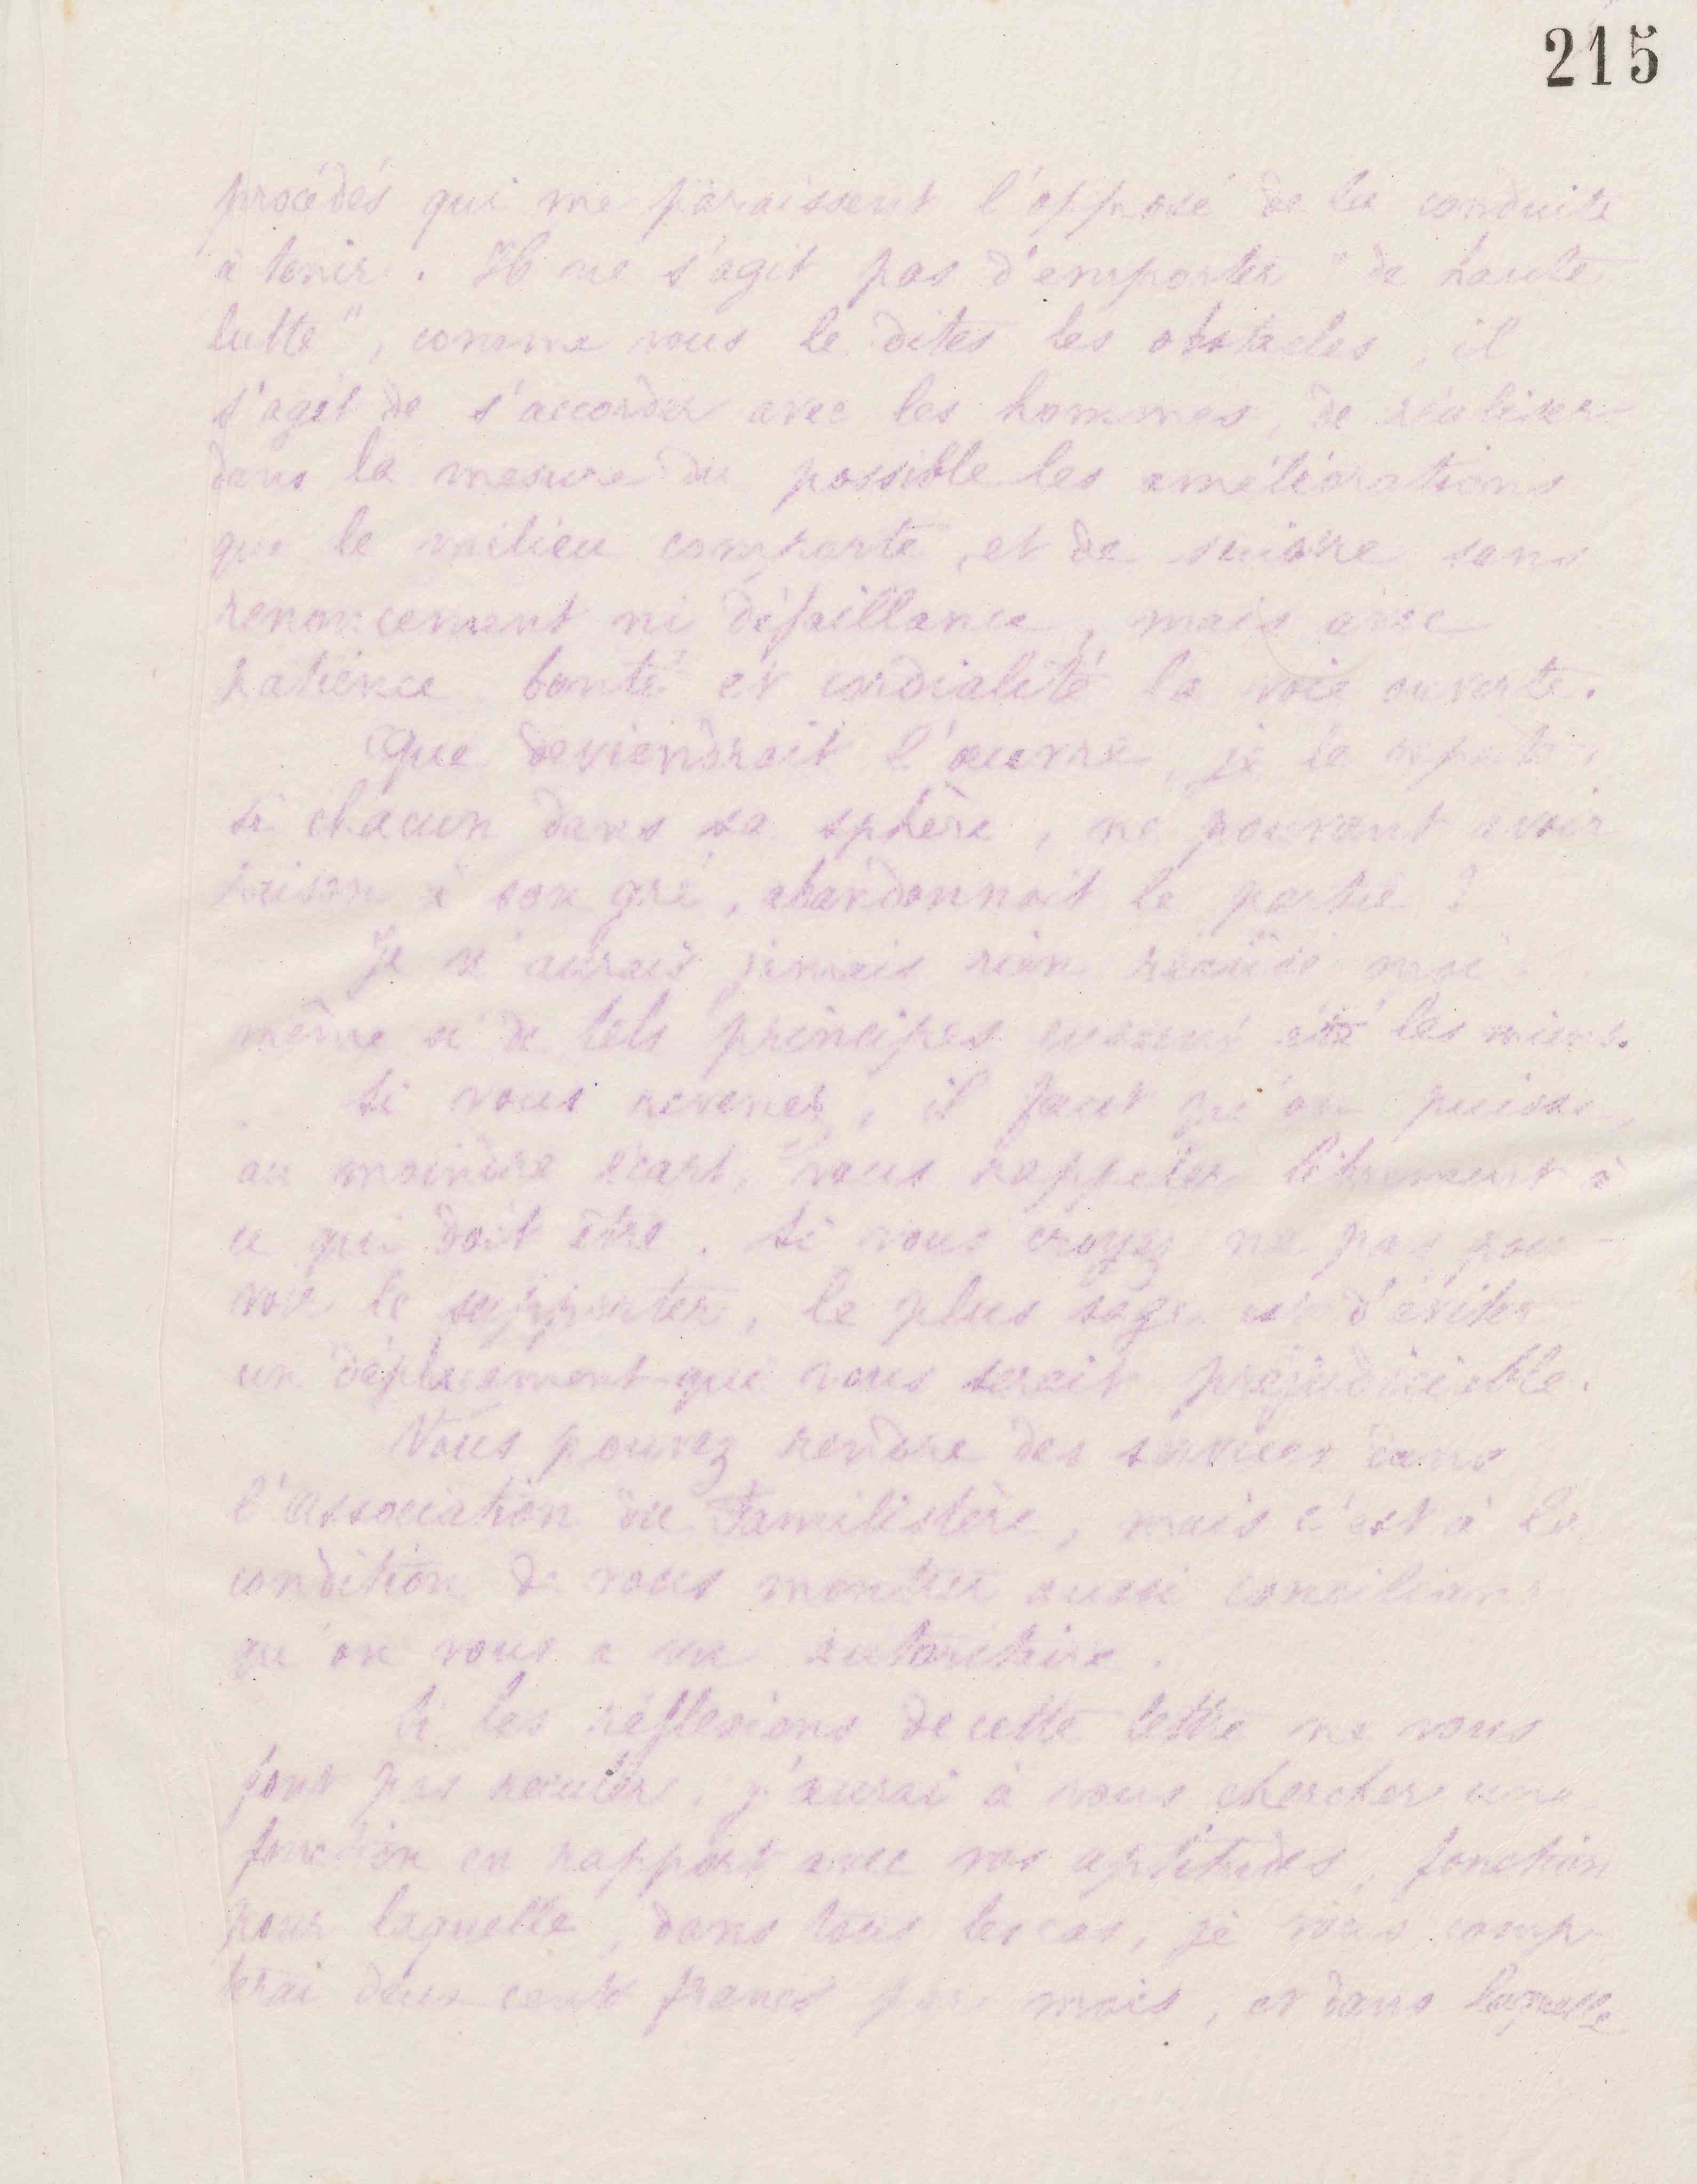 215
procédés qui me paraissent l'opposé de la conduite
à tenir. Il ne s'agit pas d'emporter "de haute
lutte", comme vous le dites les obstacles, il
s'agit de s'accorder avec les hommes, de réaliser
dans la mesure du possible les améliorations
que le milieu comporte, et de suivre sans
renoncement ni défaillance, mais avec
patience bonté et cordialité la voie ouverte.
Que deviendrait l'œuvre, je le répète,
si chacun dans sa sphère, ne pouvant avoir
raison à son gré, abandonnait la partie ?
Je n'aurais jamais rien réalisé moi-
même si de tels principes eussent été les miens.
Si vous revenez, il faut qu'on puisse,
au moindre écart, vous rappeler librement à
ce qui doit être. Si vous croyez ne pas pou-
voir le supporter, le plus sage est d'éviter
un déplacement qui vous serait préjudiciable.
Vous pouvez rendre des services dans
l'association du Familistère, mais c'est à la
condition de vous montrer aussi conciliant
qu'on vous a vu autoritaire.
Si les réflexions de cette lettre ne vous
font pas reculer, j'aurai à vous chercher une
fonction en rapport avec vos aptitudes, fonction
pour laquelle, dans tous les cas, je vous comp-
terai deux cents francs par mois, et dans laquelle